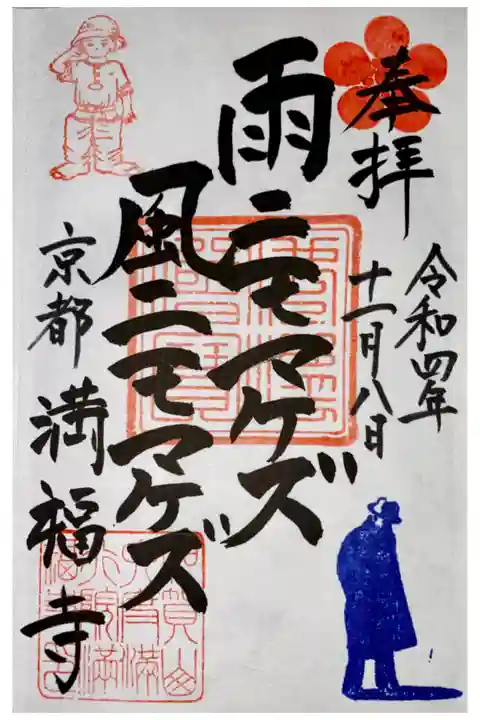 奉拝
令和四年
十一月八日
雨ニモマケズ
風ニモマケズ
京都満福寺